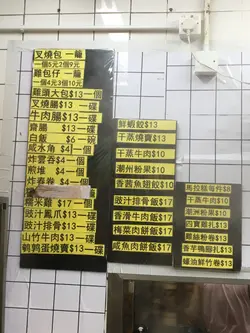 叉燒包 一籠
一個5元2個9元
雞包仔 一籠
一個4元3個10元
雞頭大包$13一個
叉燒腸$13一碟
牛肉腸$13一碟
齋腸 $13一碟
白飯 $6一碗
咸水角 $4一個
炸雲吞$4一個
煎堆 $4一個
炸春卷 $4一個
糯米雞 $17一個
豉汁鳳爪$13一碟
豉汁排骨$13一碟
山竹牛肉$13一碟
鵪鶉蛋燒賣$13
鮮蝦餃$13
干蒸燒賣$13
干蒸牛肉$10
潮州粉果$10
香茜魚翅餃$10
豉汁排骨飯$17
香滑牛肉飯$17
梅菜肉餅飯$17
咸魚肉餅飯$17
馬拉糕每件$8
干蒸牛肉$10
潮州粉果$10
四寶雞扎$13
腐絲粉卷$13
香芋鴨腳扎$13
蠔油鮮竹卷$13